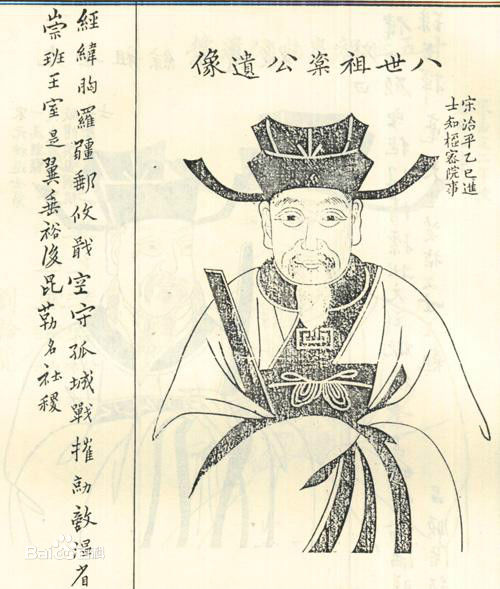 八世祖公遺像
宋治平乙巳進
士知樞密院事
經緯胸羅疆郵攸戢空守孤城戰摧勍敵省
崇班王室是翼垂裕後昆勒名社稷
Bai百科